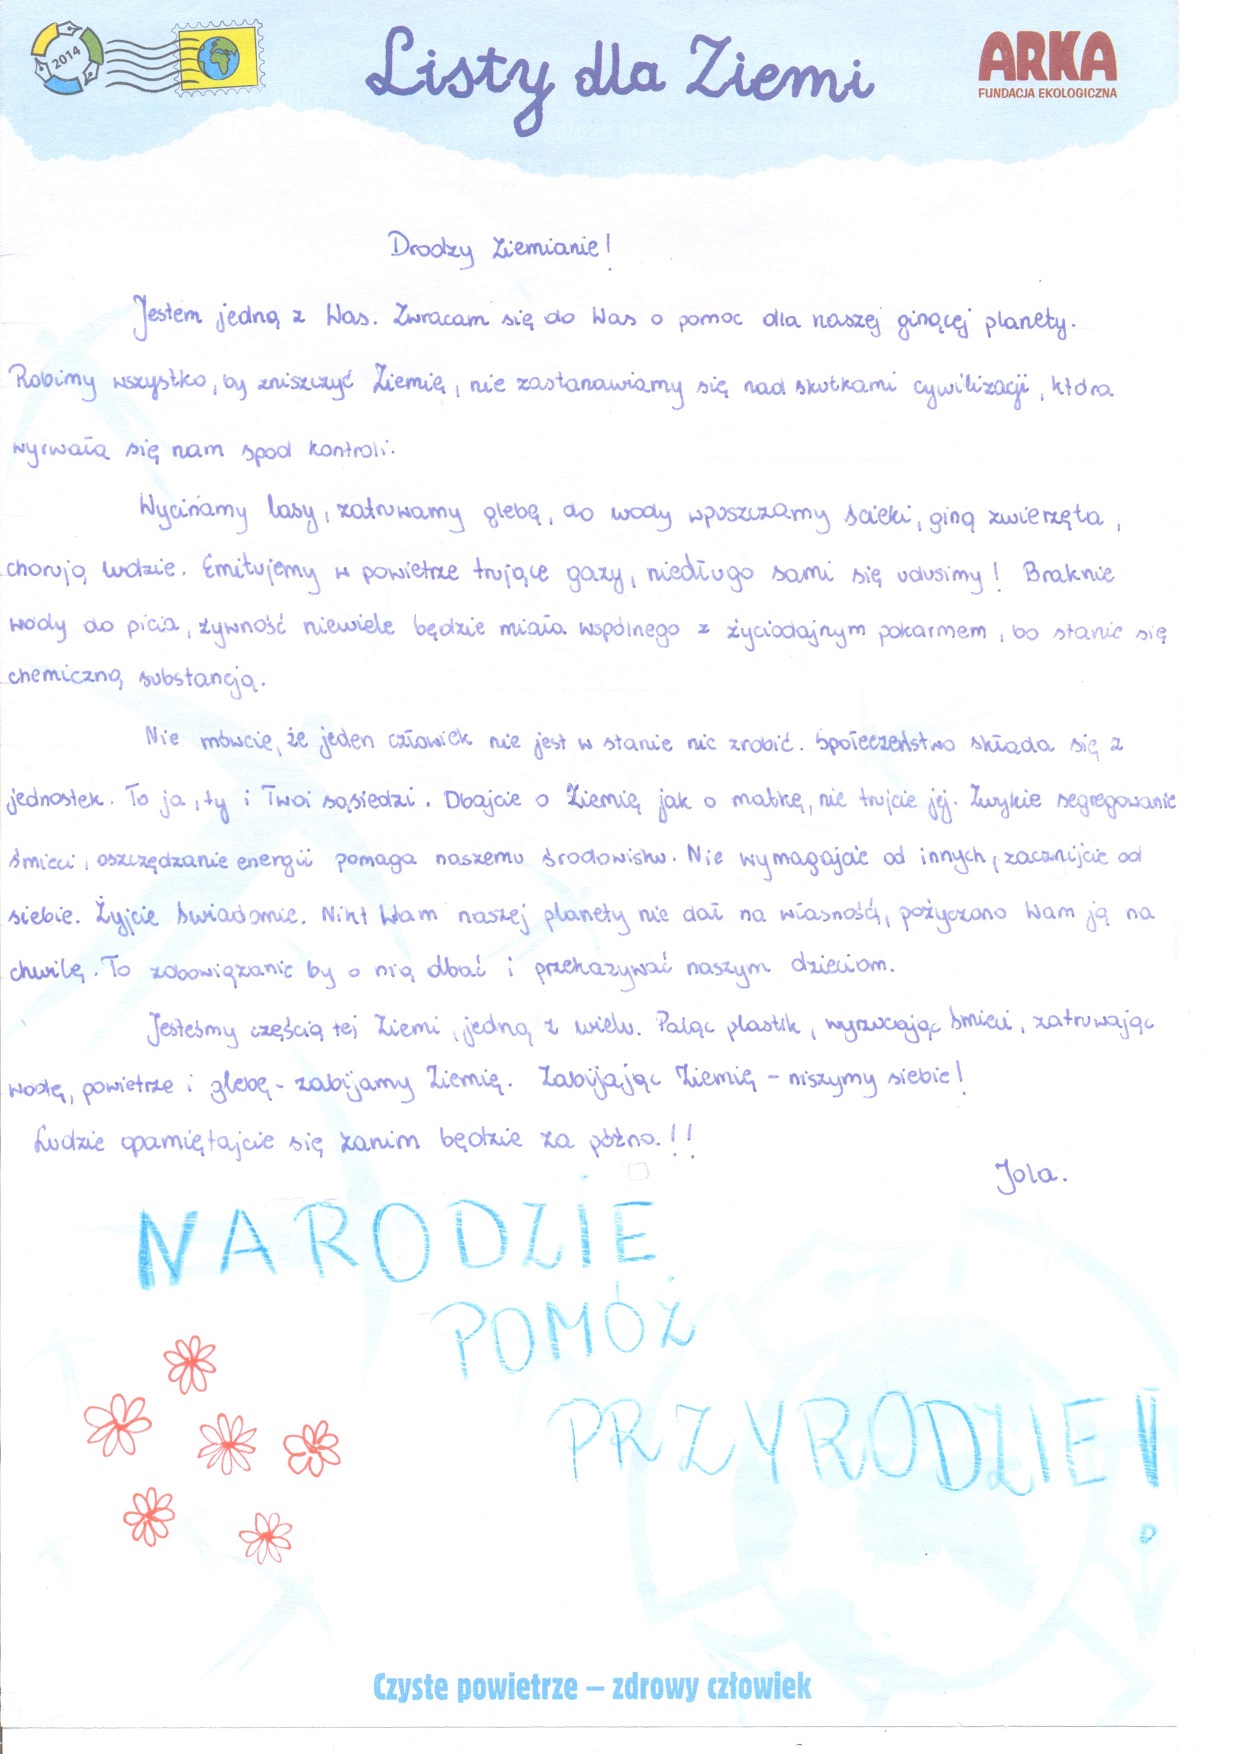 2014
Listy dla Ziemi
ARKA
FUNDACJA EKOLOGICZNA
Drodzy Ziemianie!
Jestem jedną z Was. Zwracam się do Was o pomoc dla naszej ginącej planety.
Robimy wszystko, by zniszczyć Ziemię, nie zastanawiamy się nad skutkami cywilizacji, która
wyrwała się nam spod kontroli.
Wycinamy lasy, zatruwamy glebę, do wody wpuszczamy ścieki, giną zwierzęta,
chorują ludzie. Emitujemy w powietrze trujące gazy, niedługo sami się udusimy! Braknie
wody do picia, żywność niewiele będzie miała wspólnego z życiodajnym pokarmem, bo stanie się
chemiczną substancją.
Nie mówcie, że jeden człowiek nie jest w stanie nic zrobić. Społeczeństwo składa się z
jednostek. To ja, ty i Twoi sąsiedzi. Dbajcie o Ziemię jak o matkę, nie trujcie jej. Zwykłe segregowanie
śmieci, oszczędzanie energii pomaga naszemu środowisku. Nie wymagajcie od innych, zacznijcie od
siebie. Żyjcie świadomie. Nikt Wam naszej planety nie dał na własność, pożyczono Wam ją na
chwilę. To zobowiązanie by o nią dbać i przekazywać naszym dzieciom.
Jesteśmy częścią tej Ziemi, jedną z wielu. Paląc plastik, wyrzucając śmieci, zatruwając
wodę, powietrze i glebę - zabijamy Ziemię. Zabijając Ziemię - niszymy siebie!
Ludzie opamiętajcie się zanim będzie za późno.!!
Jola.
NARODZIE
POMÓŻ
PRZYRODZIE!
Czyste powietrze – zdrowy człowiek